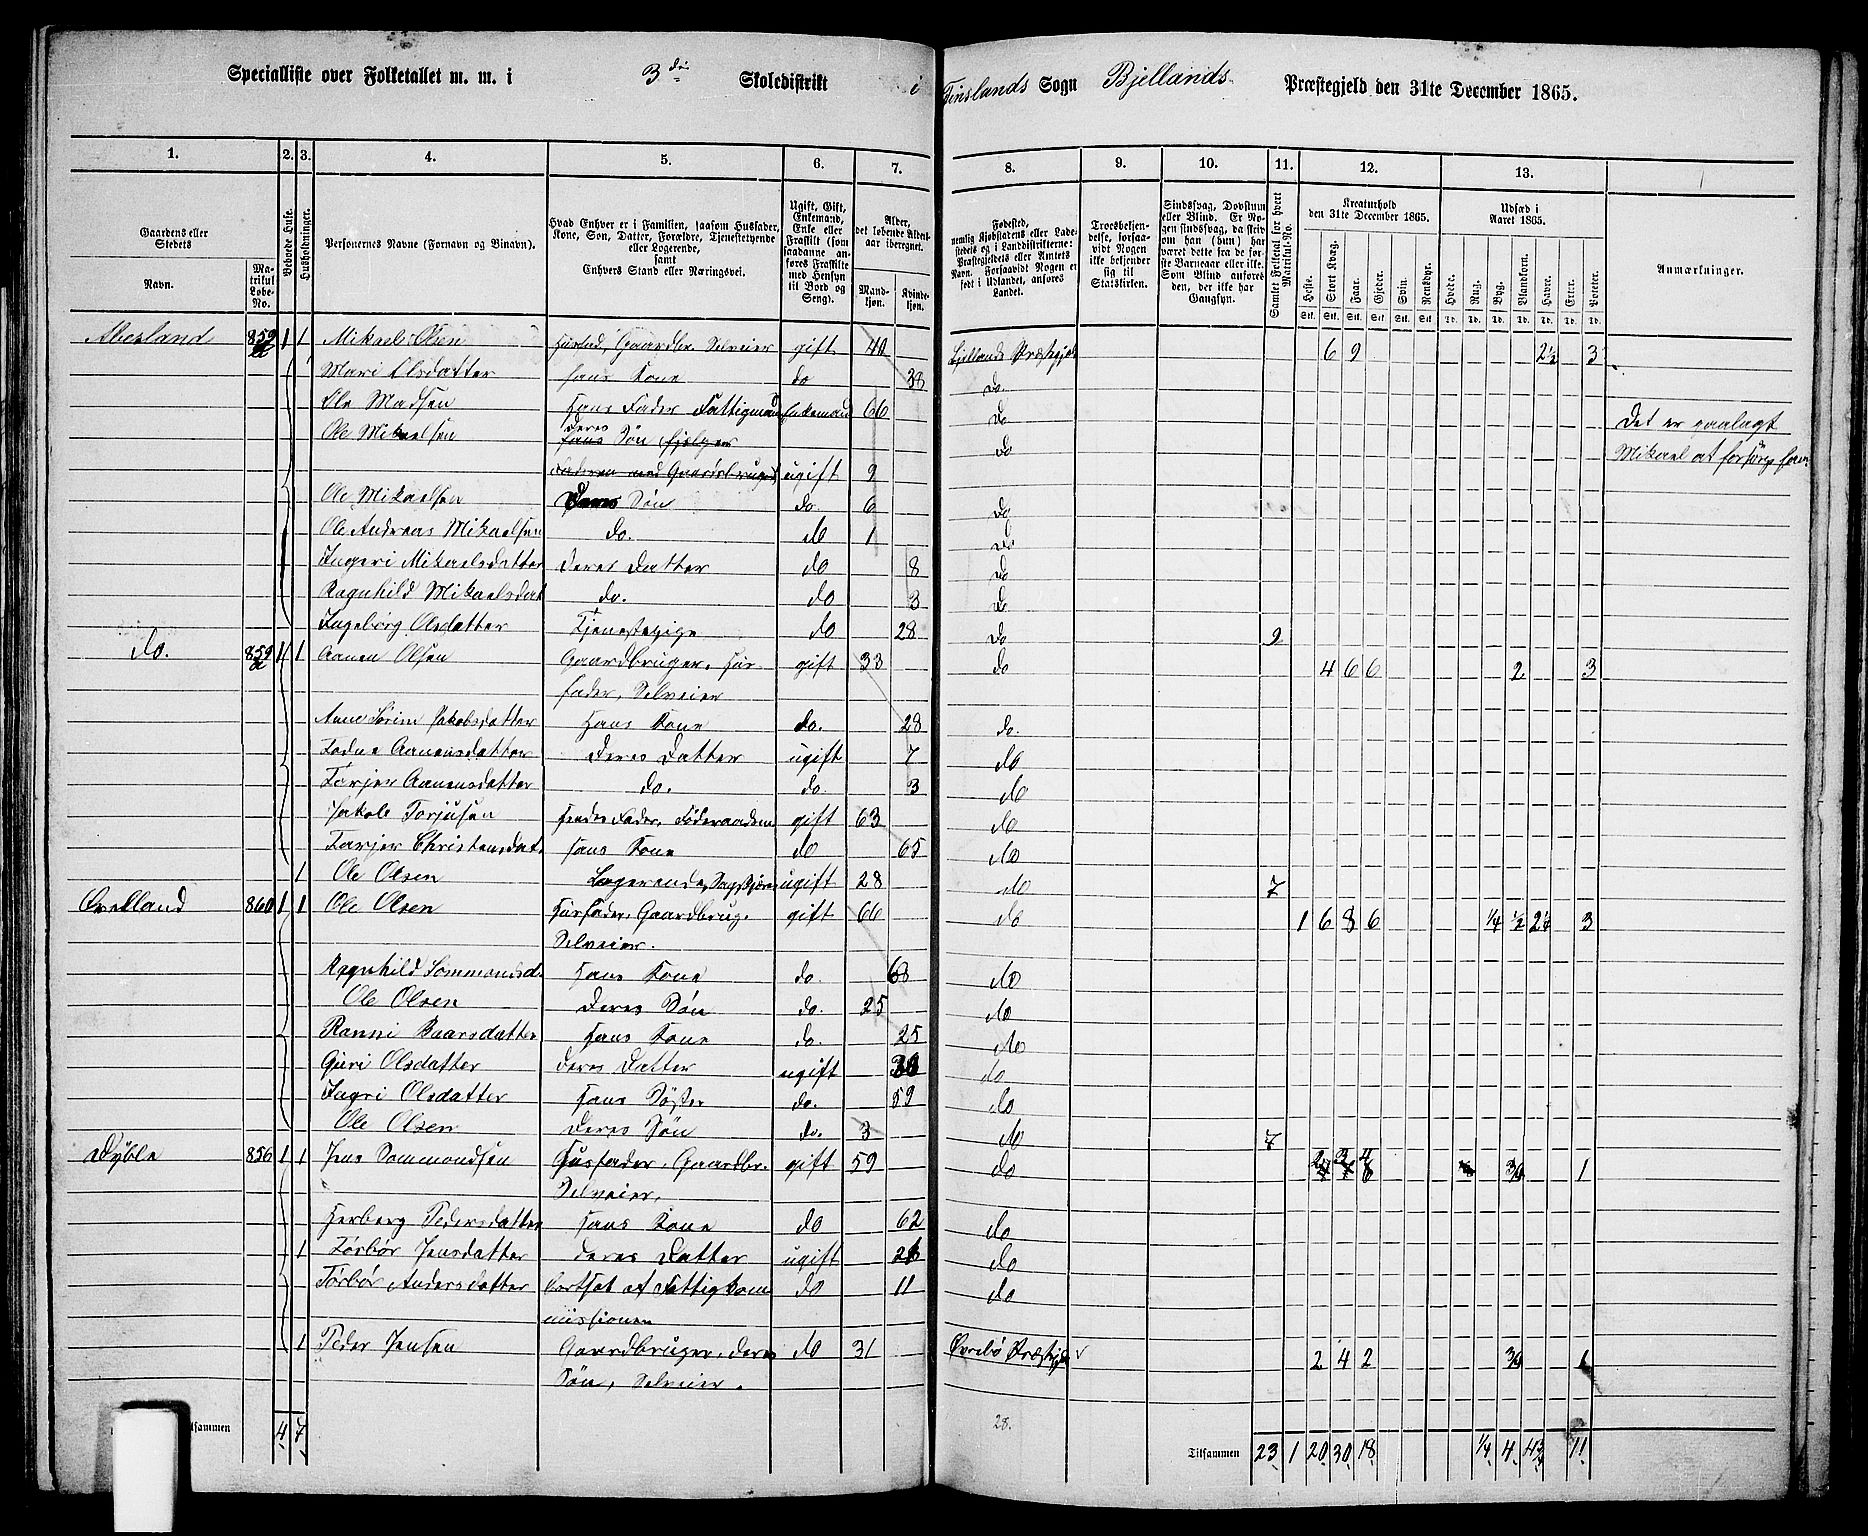 Specialliste over Folketallet m. m. i 3die Skoledistrikt i Finslands Sogn Bjellands Præstegjeld den 31te December 1865.
1. 2. 3. 4. 5. 6. 7. 8. 9. 10. 11. 12. 13.
Gaardens eller Stedets
Navn. Matrikul Løbe-No.
Bebode Huse.
Husholdninger.
Personernes Navne (Fornavn og Binavn).
Hvad Enhver er i Familien, saasom Husfader, Kone, Søn, Datter, Forældre, Tjenestetyende eller Logerende, samt Enhvers Stand eller Næringsvei.
Ugift, Gift, Enkemand, Enke eller Fraskilt (som saadanne anføres Fraskilte med Hensyn til Bord og Seng).
Alder, det løbende Aldersaar iberegnet.
Mandkjøn. Kvindekjøn.
Fødested, nemlig Kjøbstadens eller Ladestedets og i Landdistrikterne: Præstegjeldets eller Amtets Navn. Forsaavidt Nogen er født i Udlandet, anføres Landet.
Troesbekjendelse, forsaavidt Nogen ikke bekjender sig til Statskirken.
Sindssvag, Døvstum eller Blind. Er Nogen sindssvag, da skrives om han (hun) har været dette fra de første Barneaar eller ikke. Som Blind anføres den, der ikke har Gangsyn.
Samlet Folketal for hvert Matrikul-No.
Kreaturhold den 31te December 1865.
Heste. Stort Kvæg. Faar. Gjeder. Svin. Rensdyr.
Udsæd i Aaret 1865.
Hvede. Rug. Byg. Blandkorn. Havre. Erter. Poteter.
Anmærkninger.
Abesland 859 1 1 Mikael Olsen Husfad, Gaardbr. Selveier gift 40 Bjellands Præstegjeld 6 9 2½ 3
Mari Olsdatter Hans Kone do 38 do.
Ole Madsen Hans Fader Fattigmand Enkemand 66 do Det er paalagt
Ole Mikaelsen Deres Søn do Mikael at forsørge ham
ugift 9
Ole Mikaelsen Deres Søn do. 6 do
Ole Andreas Mikaelsen do. do 1 do
Ingeri Mikaelsdatter Deres Datter do 8 do
Ragnhild Mikaelsdat do. do 3 do.
Ingeborg Olsdatter Tjenestepige do 28 do 9
do. 859 1 1 Aanen Olsen Gaardbruger, Husfader, Selveier gift 33 do 4 6 6 2 3
Anne Sørine Jakobsdatter Hans Kone do. 28 do.
Aanensdatter Deres Datter ugift 7 do
Torjer Aanensdatter do. do. 3 do
Jakob Torjusen Fader, Føderaadsm gift 63 do
Torjer Christensdat. Hans Kone do 65 do
1 Ole Olsen Logerende, ugift 28 do 7
Qvelland 860 1 1 Ole Olsen Husfader, Gaardbrug. gift 66 do 1 6 8 6 ¼ ½ 2¼ 3
Selveier.
Ragnhild Sommondsd. Hans Kone do. 68 do
Ole Olsen Deres Søn do. 25 do
Ranni Baarsdatter Hans Kone do. 25 do
Guri Olsdatter Deres Datter ugift do
Ingri Olsdatter Hans Søster do. 59 do
Ole Olsen Deres Søn do. 3 do 7
Dyblo 856 1 1 Jens Sommondsen Husfader, Gaardbr. gift 59 do 2 3 4 ¾ 1
Selveier,
Herborg Pedersdatter Hans Kone do 62 do
1 Torbør Jensdatter Deres Datter ugift do
Torbør Andersdatter Bortsat af Fattigkom do 11 do
missionen
1 Peder Jensen Gaardbruger, deres do 31 Øvrebø Præstegjeld 2 4 2 ¾ 1
Søn, Selveier.
28.
Tilsammen 4 7 Tilsammen 23 1 20 30 18 ¼ 4 4¾ 11